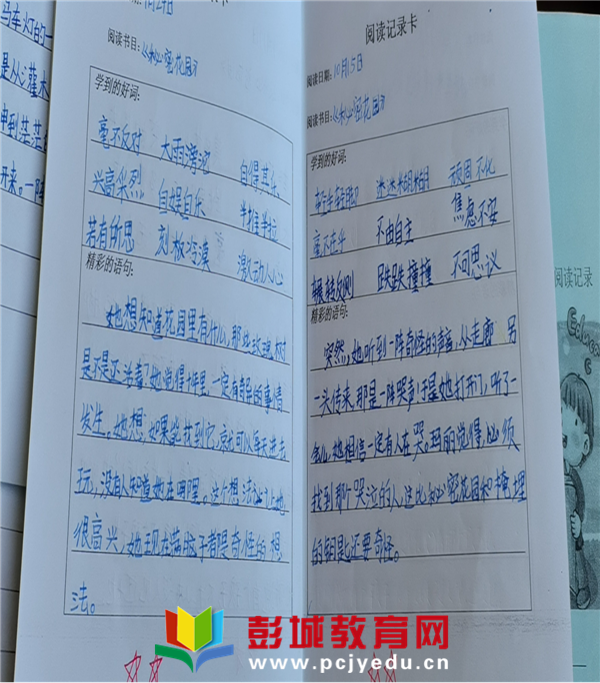 马车灯的一
是从氵灌木
开来。一阵
阅读书目:《秘密花园》
学到的好词:
毫不反对 大雨滂沱 自得其乐
兴高采烈 自娱自乐 半推半拉
若有所思 刻板冷漠 激动人心
精彩的语句:
她想知道花园里有什么,那些玫瑰树
是不是还活着?她觉得那里一定有奇异的事情
发生。她想:如果能找到它,就可以每天进去
玩,没有人知道她在哪里。这个想法让她
很高兴,她现在满脑子都是奇怪的想
法。
阅读记录卡
阅读日期:10月15日
阅读书目:《秘密花园》
学到的好词:
迷迷糊糊 顽固不化
毫不在乎 不由自主 焦虑不安
辗转反侧 跌跌撞撞 不可思议
精彩的语句:
突然,她听到一阵奇怪的声音,从走廊另
一头传来,那是一阵哭声!于是她打开门,听了一
会儿,她相信一定有人在哭。玛丽觉得,必须
找到那个哭泣的人,这比秘密花园和掩埋
的钥匙还要奇怪。
阅读记录
彭城教育网
www.pcjyedu.cn